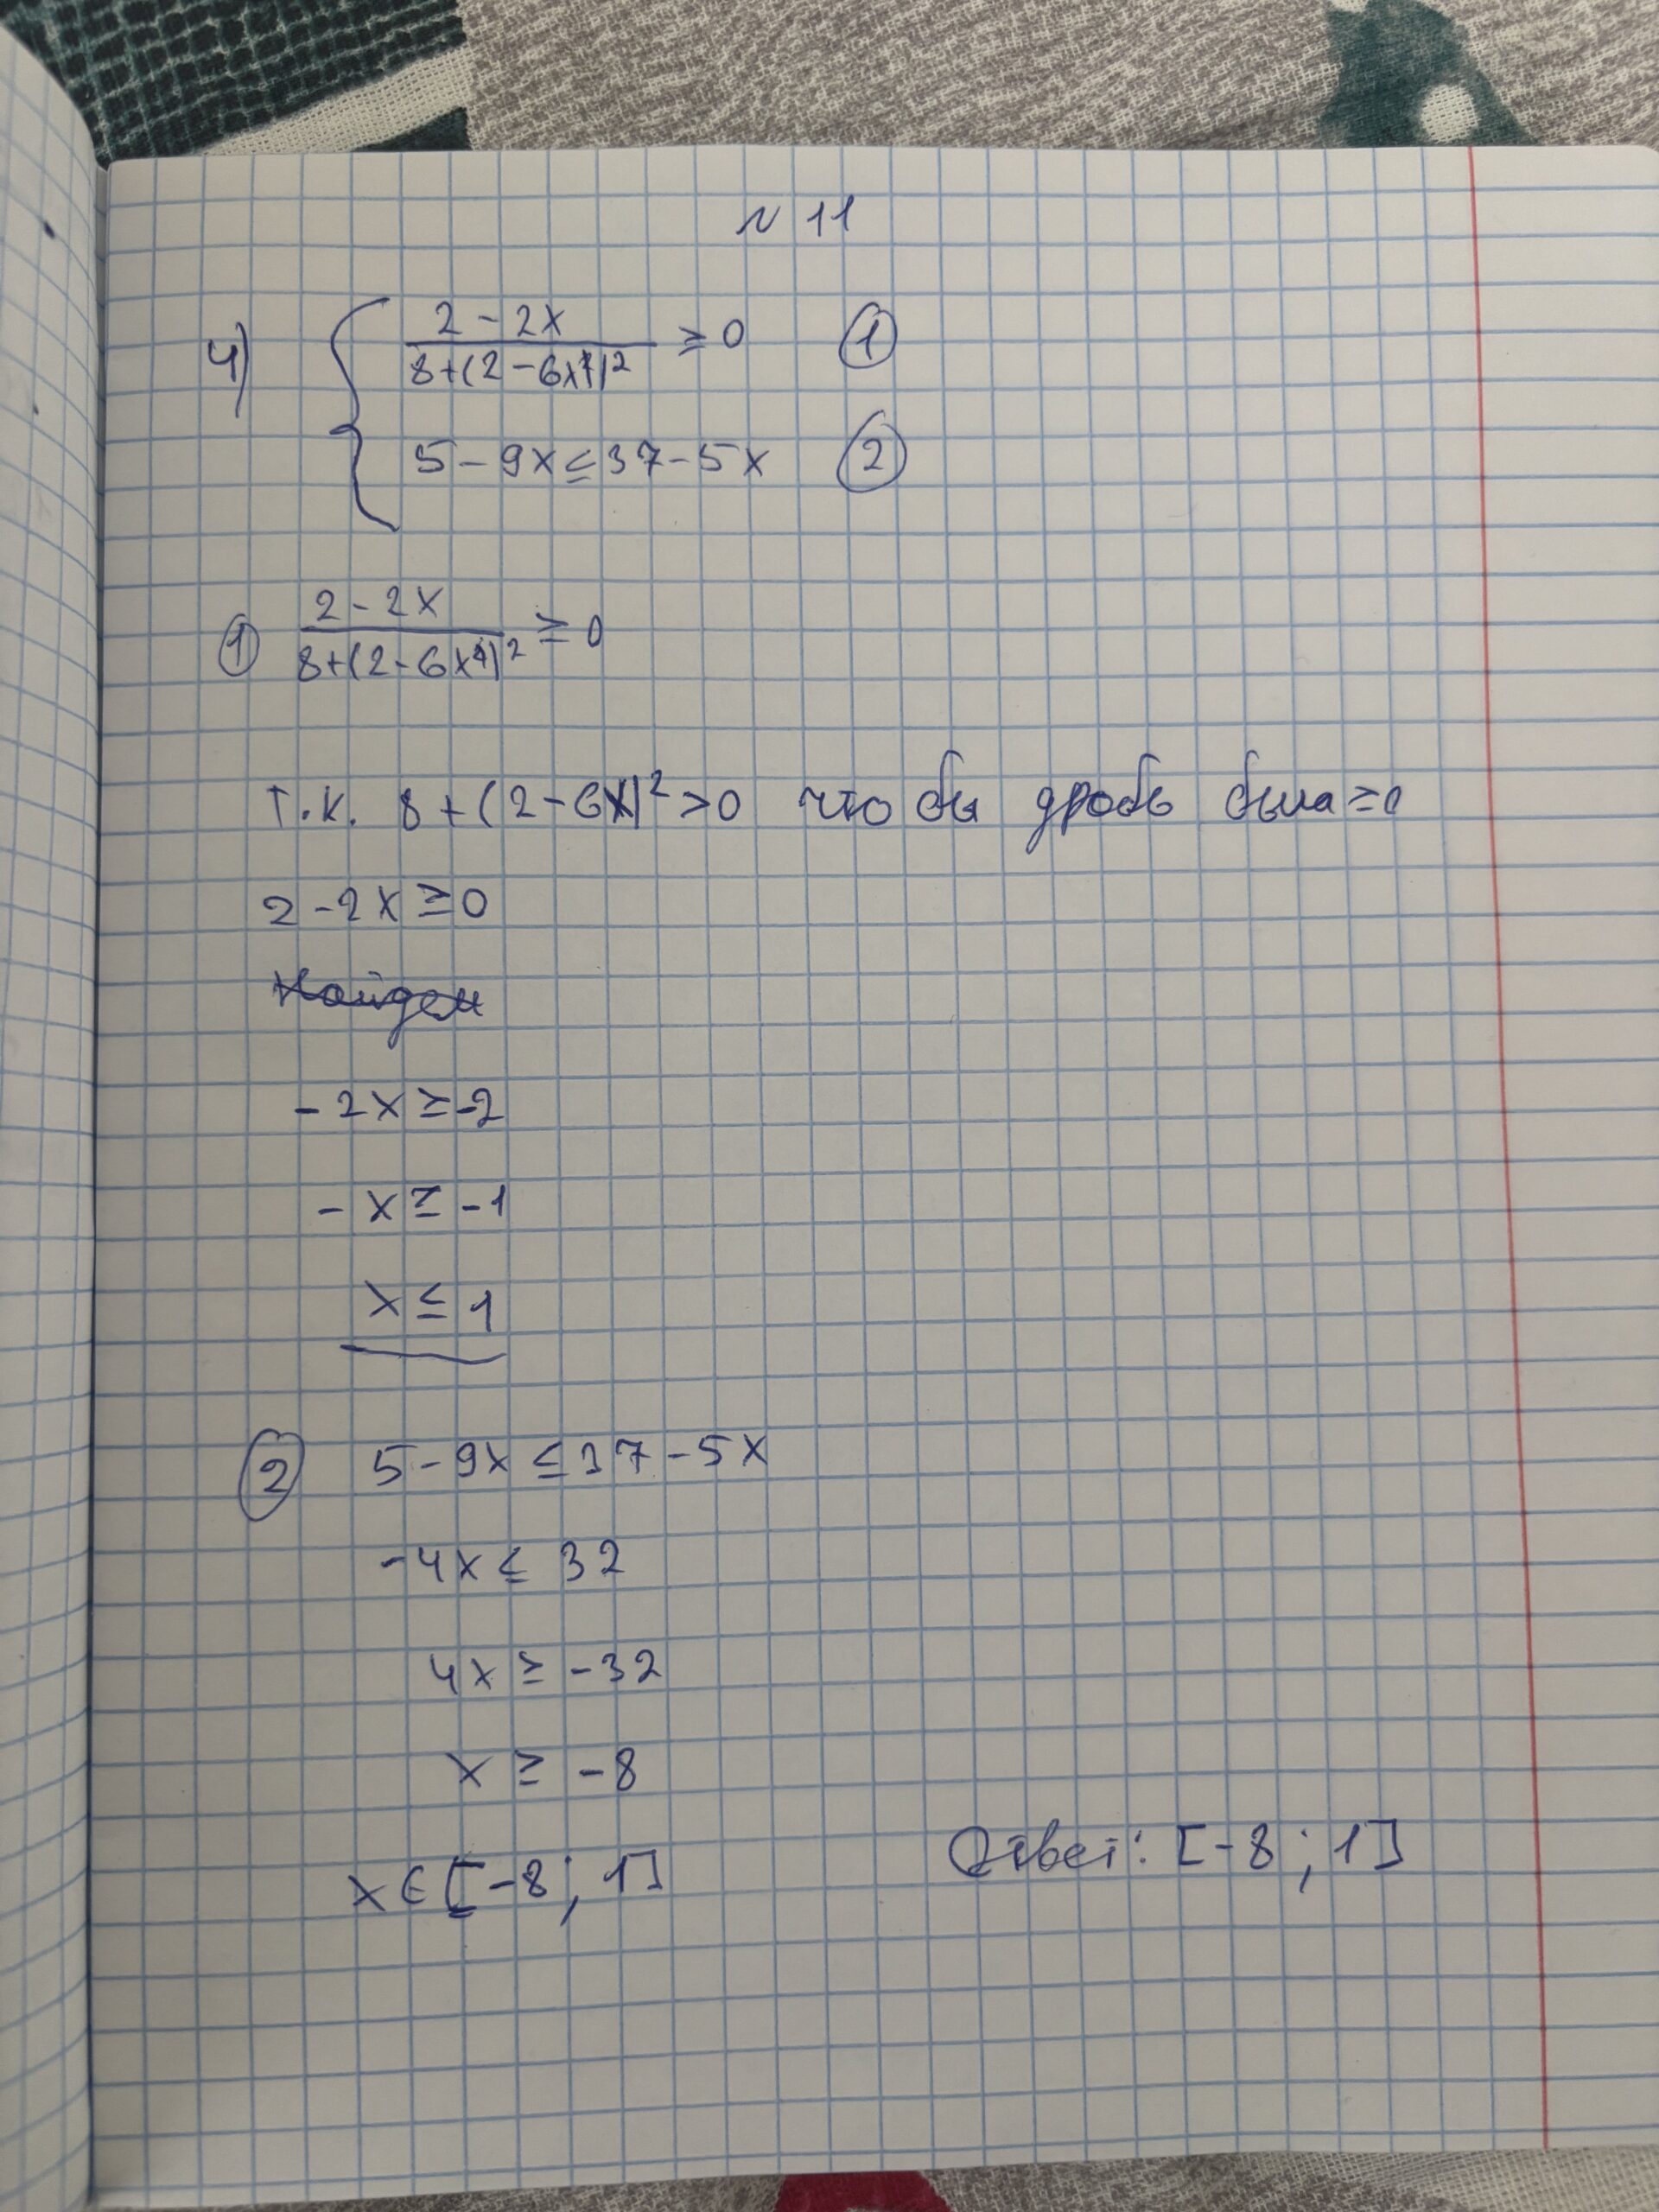 N 11
4) { (2 - 2x)/(8+(2-6x)²) ≥ 0 ①
5 - 9x ≤ 37 - 5x ②
① (2 - 2x)/(8+(2-6x)²) ≥ 0
т.к. 8 + (2 - 6x)² > 0 что бы дробь была ≥ 0
2 - 2x ≥ 0
Найдем
- 2x ≥ -2
- x ≥ -1
x ≤ 1
② 5 - 9x ≤ 37 - 5x
-4x ≤ 32
4x ≥ -32
x ≥ -8
x ∈ [-8; 1]
Ответ: [-8; 1]